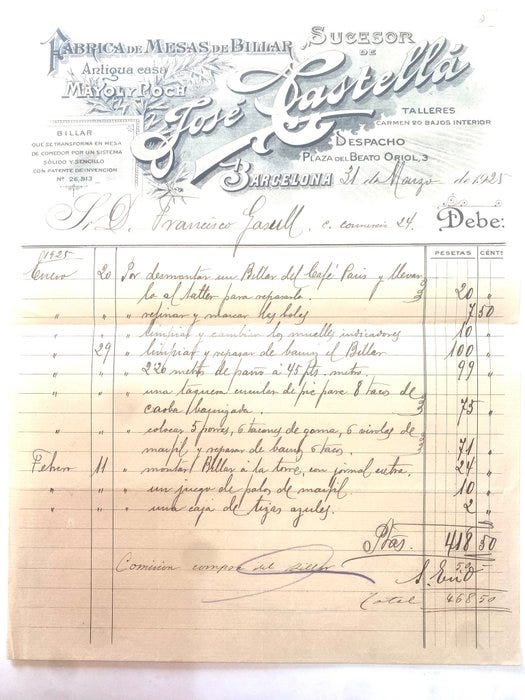 FÁBRICA DE MESAS DE BILLAR
Antigua casa
MAYOL Y POCH
SUCESOR
DE
José Castellá
BILLAR
QUE SE TRANSFORMA EN MESA
DE COMEDOR POR UN SISTEMA
SÓLIDO Y SENCILLO
CON PATENTE DE INVENCIÓN
Nº 26,913
TALLERES
CARMEN 20 BAJOS INTERIOR
DESPACHO
PLAZA DEL BEATO ORIOL, 3
BARCELONA 21 de Marzo de 1925
S. D. Francisco Gasull c. comercio 24. Debe:
PESETAS CÉNTS
1925
Enero 20 Por desmontar un Billar del Café Paris y llevar
lo al taller para repararlo. 20 "
" " refinar y marcar las bolas 7 50
" " limpiar y cambiar los muelles indicadores 10 "
29 " limpiar y repasar de barniz el Billar 100 "
" " 2'20 metros de paño á 45 pts. metro. 99 "
" " una taquera circular de pie para 8 tacos de
caoba barnizada. 75 "
" " colocar 5 porres, 6 tacones de goma, 6 virolas de
marfil y repasar de barniz 6 tacos. 71 "
Febrero 11 " montar Billar á la torre, con jornal extra. 24 "
" " un juego de palos de marfil. 10 "
" " una caja de tizas azules. 2 "
Ptas. 418 50
Comisión compra del Billar 50
Total 468 50